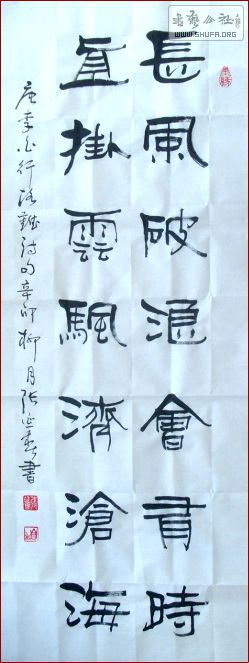 長風破浪會有時
直掛雲颿濟滄海
唐李白行路難詩句辛卯柳月張延春書
書藝公社
WWW.SHUFA.ORG